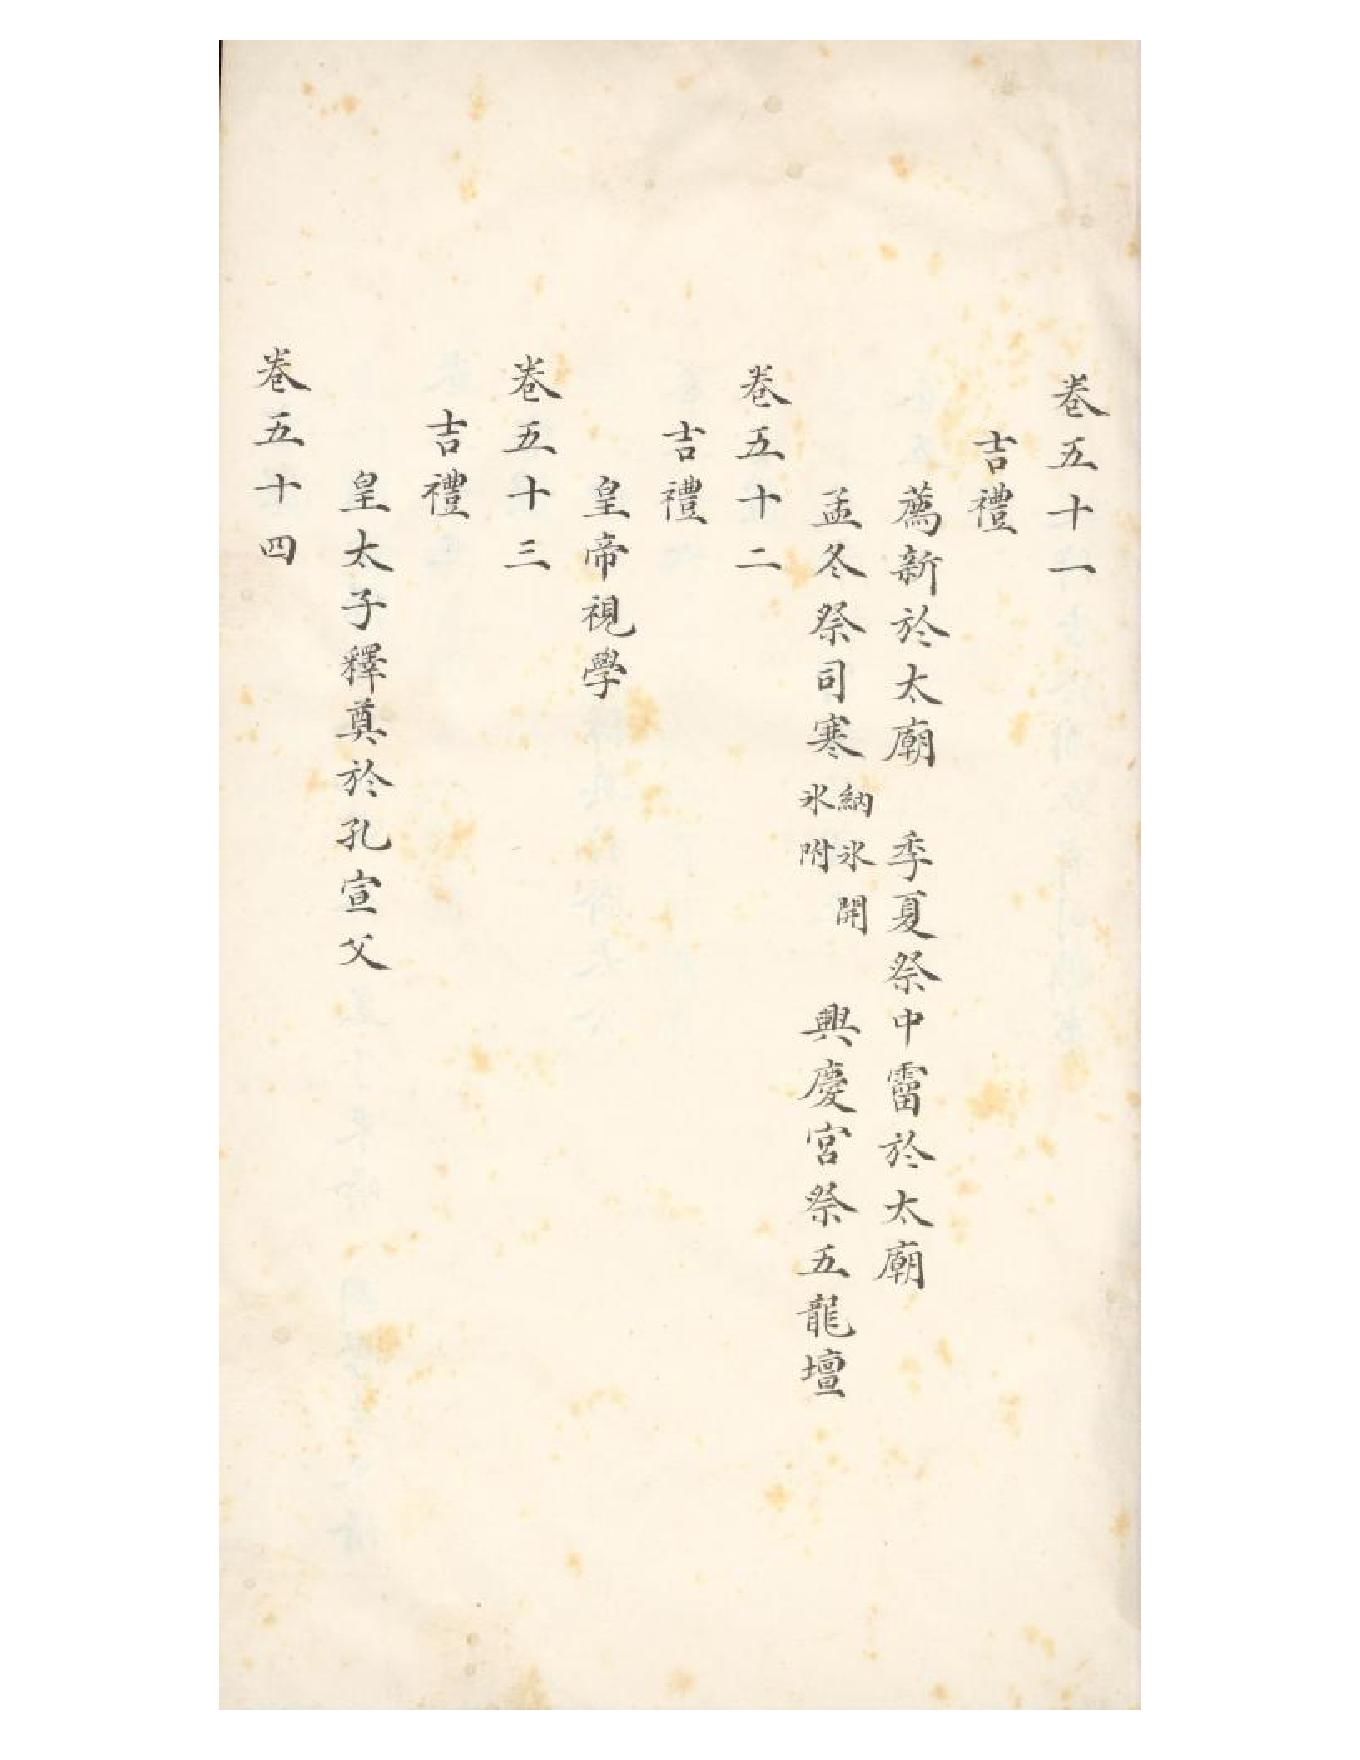 卷五十一
吉禮
薦新於太廟　季夏祭中霤於太廟
孟冬祭司寒納氷開氷附　興慶宮祭五龍壇
卷五十二
吉禮
皇帝視學
卷五十三
吉禮
皇太子釋奠於孔宣父
卷五十四